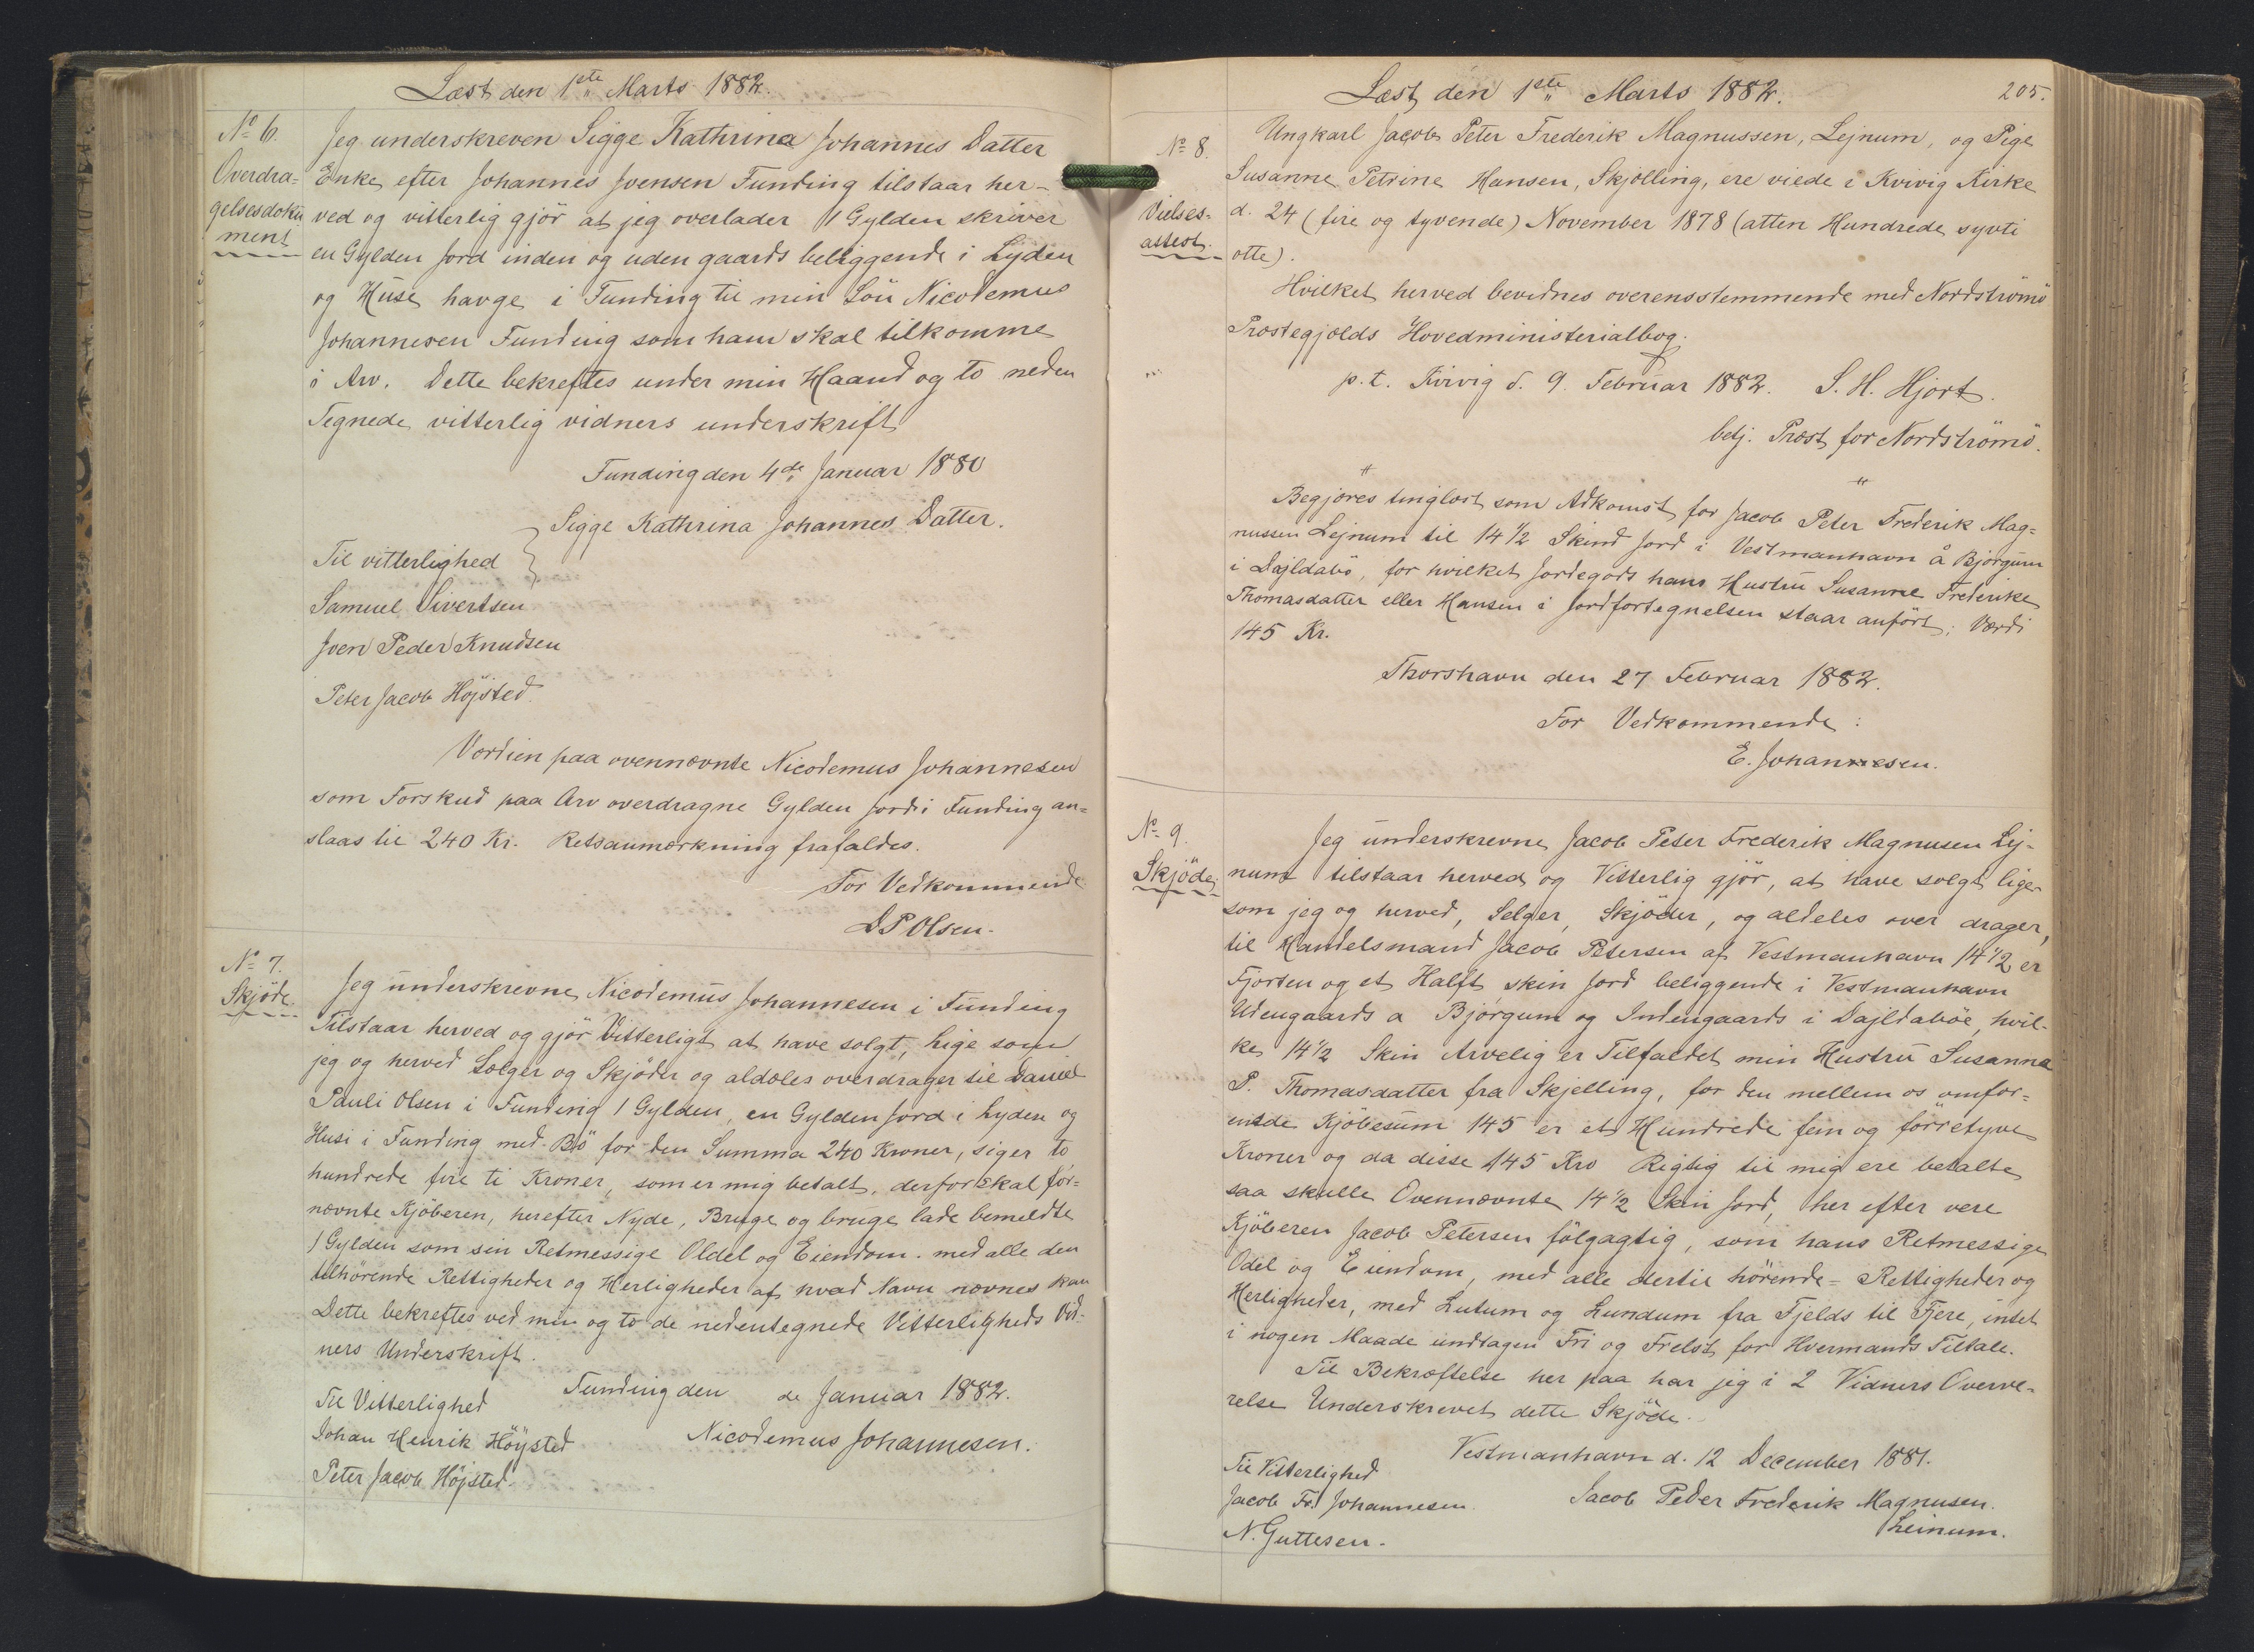 Læst den 1ste Marts 1882.
No 6.
Overdra=
gelsesdoku
ment
Jeg underskreven Sigge Kathrina Johannes Datter
Enke efter Johannes Joensen Funding tilstaar her-
ved og vitterlig gjör at jeg overlader 1 Gylden skriver
en Gylden Jord inden og uden gaards beliggende i Lyden
og Huse havge i Funding til min Sön Nicodemus
Johannesen Funding som ham skal tilkomme
i Arv. Dette bekreftes under min Haand og to neden
Tegnede vitterlig vidners underskrift
Funding den 4de Januar 1880
Sigge Kathrina Johannes Datter.
Til vitterlighed
Samuel Sivertsen
Joen Peder Knudsen
Peter Jacob Höjsted
Værdien paa ovennævnte Nicodemus Johannesen
som Forskud paa Arv overdragne Gylden Jord i Funding an=
slaas til 240 Kr. Retsanmærkning frafaldes.
For Vedkommende
D P Olsen.
No 7.
Skjöde.
Jeg underskrevne Nicodemus Johannesen i Funding
Tilstaar herved og gjör Vitterligt at have solgt, lige som
jeg og herved Sælger og Skjöder og aldæles overdrager til Daniel
Pauli Olsen i Funding 1 Gylden, en Gylden Jord i Lyden og
Husi i Funding med Bö for den Summa 240 Kroner, siger to
hundrede fire ti Kroner, som er mig betalt, derfor skal for=
nævnte Kjöberen, herefter Nyde, Bruge og bruge lade bemeldte
1 Gylden som sin Retmessige Oldel og Eiendom. med alle den
tilhörende Rettigheder og Herligheder af hvad Navn nævnes kan
Dette bekreftes ved min og to de nedentegnede Vitterligheds Vid-
ners Underskrift.
Funding den de Januar 1882.
Til Vitterlighed
Johan Henrik Höysted
Nicodemus Johannesen.
Peter Jacob Höjsted.
Læst den 1ste Marts 1882.
205.
No 8.
Vielses-
attest.
Ungkarl Jacob Peter Frederik Magnussen, Lejnum, og Pige
Susanne Petrine Hansen, Skjölling, ere viede i Kvivig Kirke
d. 24 (fire og tyvende) November 1878 (atten Hundrede syvti
otte).
Hvilket herved bevidnes overensstemmende med Nordströmö
Præstegjælds Hovedministerialbog.
p.t. Kvivig d. 9. Februar 1882. S. H. Hjort.
betj. Præst for Nordströmö.
Begjæres tinglæst som Adkomst for Jacob Peter Frederik Mag=
nussen Lejnum til 14 1/2 Skind Jord i Vestmanhavn å Bjørgum
i Dajldabö, for hvilket Jordegods hans Hustru Susanne Frederike
Thomasdatter eller Hansen i Jordfortegnelsen staar anfört; Værdi
145 Kr.
Thorshavn den 27 Februar 1882.
For Vedkommende:
E. Johannesen.
No 9.
Skjöde,
Jeg underskrevne Jacob Peter Frederik Magnusen Lej-
num tilstaar herved og Vitterlig gjör, at have solgt lige-
som jeg og herved, Selger, Skjöder, og aldeles over drager,
til Handelsmand Jacob Petersen af Vestmanhavn 14 1/2 er
Fjorten og et Halft skin Jord beliggende i Vestmanhavn
Udengaards a Bjørgum og Indengaards i Dajldaböe, hvil-
ke 14 1/2 Skin Arvelig er Tilfaldet min Hustru Susanna
P. Thomasdatter fra Skjelling, for den mellem os omfor=
enede Kjöbesum 145 er et Hundrede fem og förretyve
Kroner og da disse 145 Kro Rigtig til mig ere betalte
saa skulle Ovennævnte 14 1/2 Skin Jord, her efter vere
Kjöberen Jacob Petersen fölgagtig, som hans Retmessige
Odel og Eiendom, med alle dertil hörende- Rettigheder og
Herligheder, med Lutum og Lundum fra Fjelds til Fjere, intet
i nogen Maade undtagen Fri og Frelst for Hvermands Tiltale.
Til Bekræftelse her paa har jeg i 2 Vidners Overve-
relse Underskrevet dette Skjöde.
Vestmanhavn d. 12 December 1881.
Til Vitterlighed
Jacob Fr. Johannesen.
Jacob Peder Frederik Magnusen.
Leinum.
N. Guttesen.